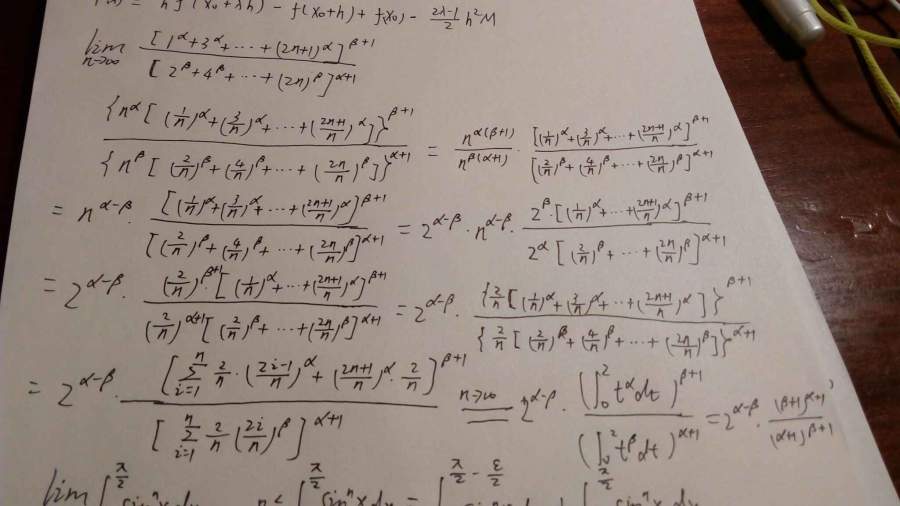 h f'(x₀+λh) - f(x₀+h) + f(x₀) - \frac{2λ-1}{2} h²M
\lim_{n→∞} \frac{[1^α+3^α+⋯+(2n+1)^α]^{β+1}}{[2^β+4^β+⋯+(2n)^β]^{α+1}}
\frac{\{n^α[(\frac{1}{n})^α+(\frac{3}{n})^α+⋯+(\frac{2n+1}{n})^α]\}^{β+1}}{\{n^β[(\frac{2}{n})^β+(\frac{4}{n})^β+⋯+(\frac{2n}{n})^β]\}^{α+1}} = \frac{n^{α(β+1)}}{n^{β(α+1)}} · \frac{[(\frac{1}{n})^α+(\frac{3}{n})^α+⋯+(\frac{2n+1}{n})^α]^{β+1}}{[(\frac{2}{n})^β+(\frac{4}{n})^β+⋯+(\frac{2n}{n})^β]^{α+1}}
= n^{α-β} · \frac{[(\frac{1}{n})^α+(\frac{3}{n})^α+⋯+(\frac{2n+1}{n})^α]^{β+1}}{[(\frac{2}{n})^β+(\frac{4}{n})^β+⋯+(\frac{2n}{n})^β]^{α+1}} = 2^{α-β} · n^{α-β} · \frac{2^β·[(\frac{1}{n})^α+⋯+(\frac{2n+1}{n})^α]^{β+1}}{2^α[(\frac{2}{n})^β+⋯+(\frac{2n}{n})^β]^{α+1}}
= 2^{α-β} · \frac{(\frac{2}{n})^{β+1}·[(\frac{1}{n})^α+⋯+(\frac{2n+1}{n})^α]^{β+1}}{(\frac{2}{n})^{α+1}[(\frac{2}{n})^β+⋯+(\frac{2n}{n})^β]^{α+1}} = 2^{α-β} · \frac{\{\frac{2}{n}[(\frac{1}{n})^α+(\frac{3}{n})^α+⋯+(\frac{2n+1}{n})^α]\}^{β+1}}{\{\frac{2}{n}[(\frac{2}{n})^β+(\frac{4}{n})^β+⋯+(\frac{2n}{n})^β]\}^{α+1}}
= 2^{α-β} · \frac{[\sum_{i=1}^{n} \frac{2}{n}·(\frac{2i-1}{n})^α+(\frac{2n+1}{n})^α·\frac{2}{n}]^{β+1}}{[\sum_{i=1}^{n} \frac{2}{n}(\frac{2i}{n})^β]^{α+1}} \overset{n→∞}{=} 2^{α-β} · \frac{(∫_0^2 t^α dt)^{β+1}}{(∫_0^2 t^β dt)^{α+1}} = 2^{α-β} · \frac{(β+1)^{α+1}}{(α+1)^{β+1}}
lim ∫^{\frac{π}{2}} sin^n x dx ∫^{\frac{π}{2}} sin^n x dx = ∫^{\frac{π}{2}-\frac{ε}{2}} ∫^{\frac{π}{2}} sin^n x dx